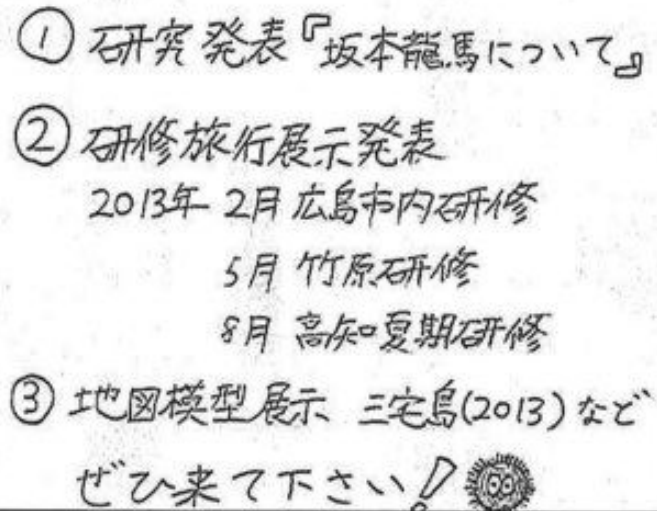 ① 研究発表『坂本龍馬について』
② 研修旅行展示発表
2013年 2月 広島市内研修
5月 竹原研修
8月 高知夏期研修
③ 地図模型展示 三宅島(2013)など
ぜひ来て下さい!